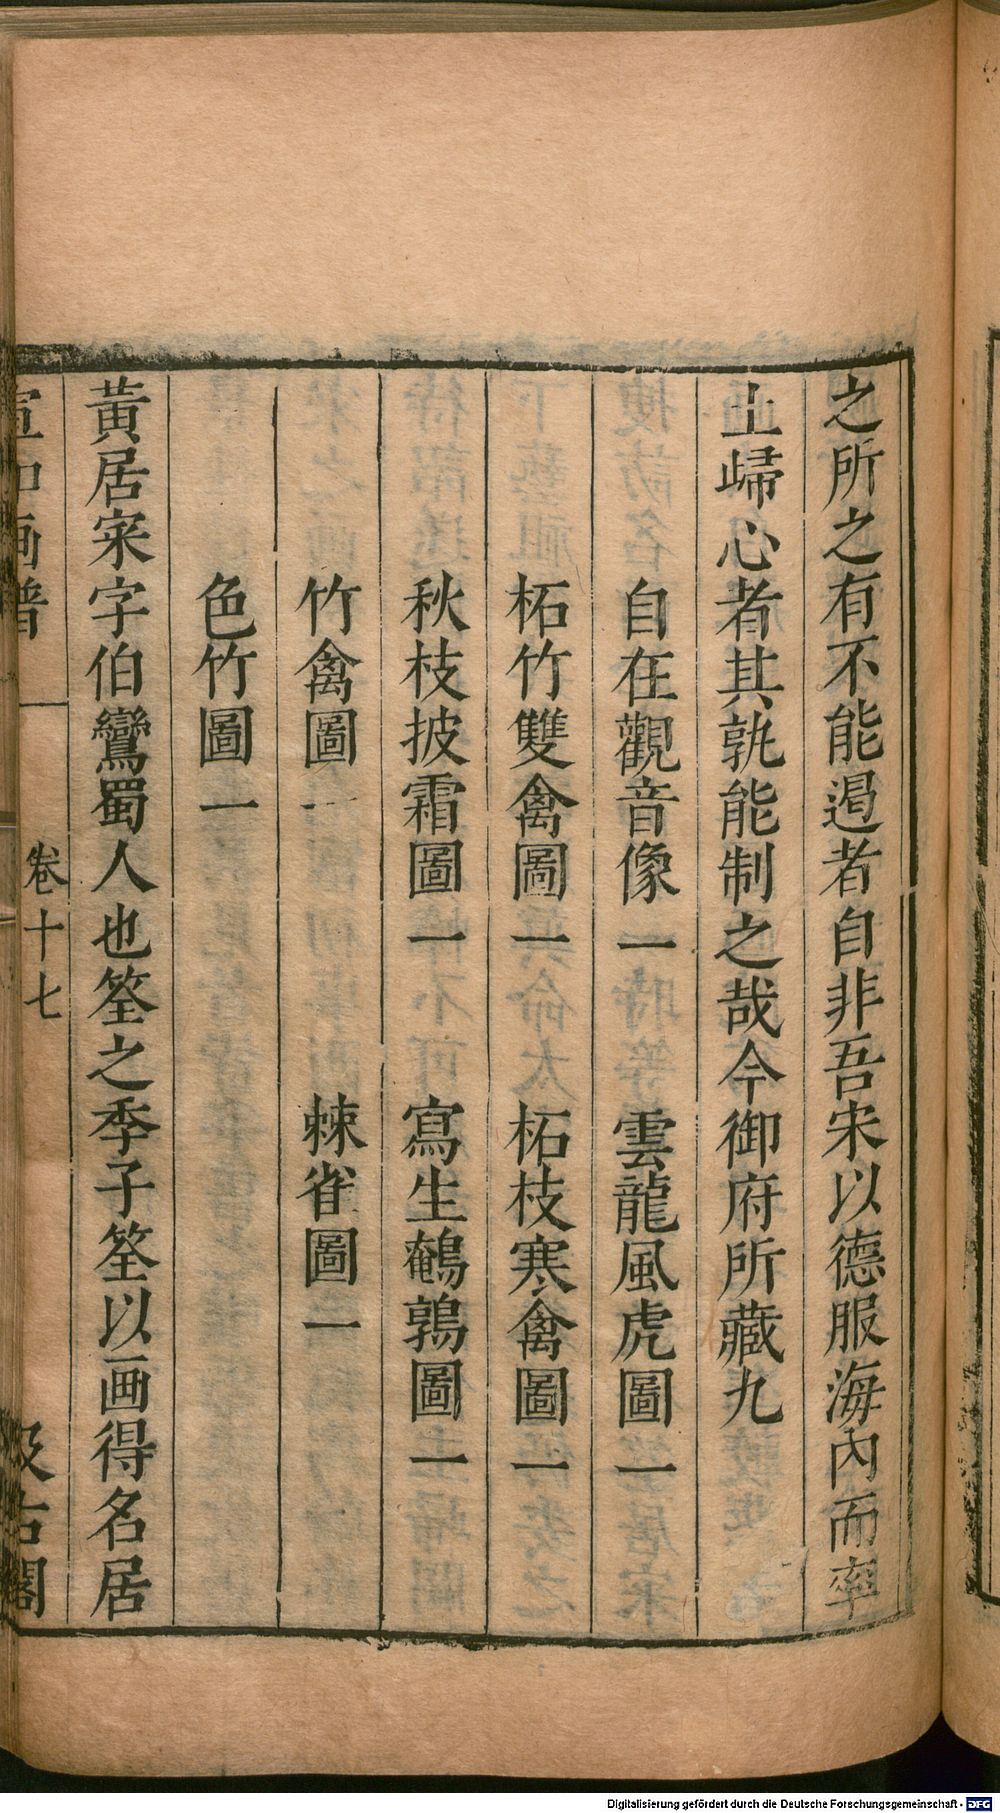 之所之有不能遏者自非吾宋以德服海內而率
土歸心者其孰能制之哉今御府所藏九
自在觀音像一　雲龍風虎圖一
柘竹雙禽圖一　柘枝寒禽圖一
秋枝披霜圖一　寫生鵪鶉圖一
竹禽圖一　棘雀圖一
色竹圖一
黃居寀字伯鸞蜀人也筌之季子筌以画得名居
宣和画譜　卷十七　汲古閣
Digitalisierung gefördert durch die Deutsche Forschungsgemeinschaft - DFG